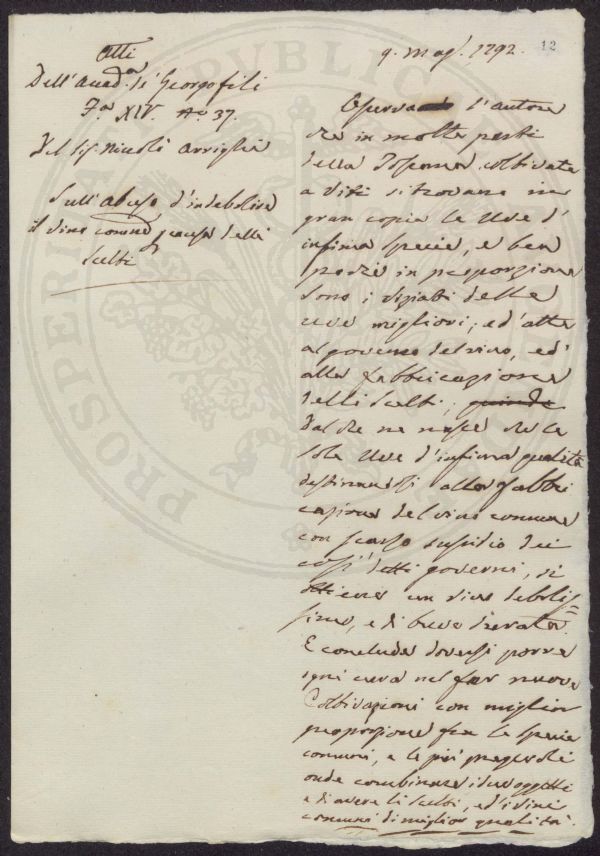 Atti
Dell'Accad.a de' Georgofili
T.o XIV. N.o 37.
Del Sig. Niccolò Arrighi
Sull'abuso d'indebolire
il vino comune a causa delli
Scelti
9. Mag. 1792.
12
Osserva l'autore
che in molte parti
della Toscana coltivate
a viti si trovano in
gran copia le uve d'
infima specie, e ben
pochi in proporzione
sono i vizzati delle
uve migliori, ed atte
al governo del vino, ed
alla fabbricazione
delli Scelti; quindi
dal che ne nasce che le
sole uve d'infima qualità
destinandosi alla fabbri
cazione del vino comune
con scarso sussidio dei
così detti governi, si
ottiene un vino debolis=
simo, e di breve durata.
E conclude doversi porre
ogni cura nel far nuove
Coltivazioni con miglior
proporzione fra le specie
comuni, e le più pregevoli
onde combinare i due oggetti
e di avere li Scelti, ed i vini
comuni di miglior qualità.
PROSPERITATI PUBLICAE